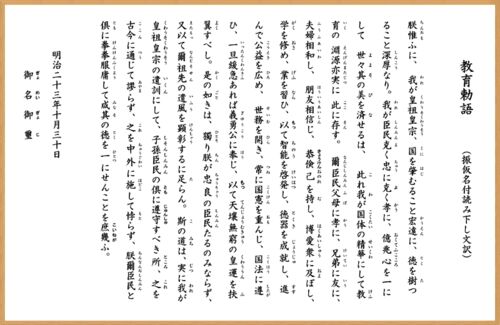 教育勅語 (振仮名付読み下し文訳)
朕惟ふに、我が皇祖皇宗、国を肇むること宏遠に、徳を樹つ
ること深厚なり。我が臣民克く忠に克く孝に、億兆心を一に
して 世々其の美を済せるは、此れ我が国体の精華にして教
育の 淵源亦実に 此に存す。爾臣民父母に孝に、兄弟に友に、
夫婦相和し、朋友相信じ、恭倹己を持し、博愛衆に及ぼし、
学を修め、業を習ひ、以て智能を啓発し、徳器を成就し、進
んで公益を広め、世務を開き、常に国憲を重んじ、国法に遵
ひ、一旦緩急あれば義勇公に奉じ、以て天壌無窮の皇運を扶
翼すべし。是の如きは、獨り朕が忠良の臣民たるのみならず、
又以て爾祖先の遺風を顕彰するに足らん。斯の道は、実に我が
皇祖皇宗の遺訓にして、子孫臣民の倶に遵守すべき所、之を
古今に通じて謬らず、之を中外に施して悖らず、朕爾臣民と
倶に拳拳服膺して咸其の徳を一にせんことを庶幾ふ。
明治二十三年十月三十日
御名御璽